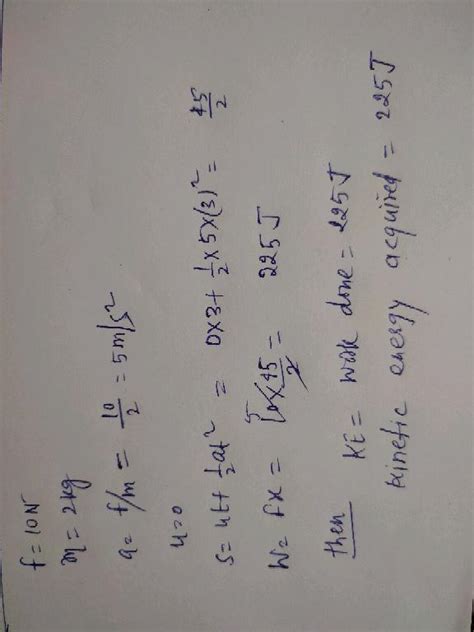 f = 10N
m = 2kg
a = f/m = 10/2 = 5m/s²
u=0
S = ut + 1/2 at² = 0×3 + 1/2 ×5×(3)² = 45/2
W = fx = 10 × 45/2 = 225J
5
then KE = work done = 225J
Kinetic energy acquired = 225J